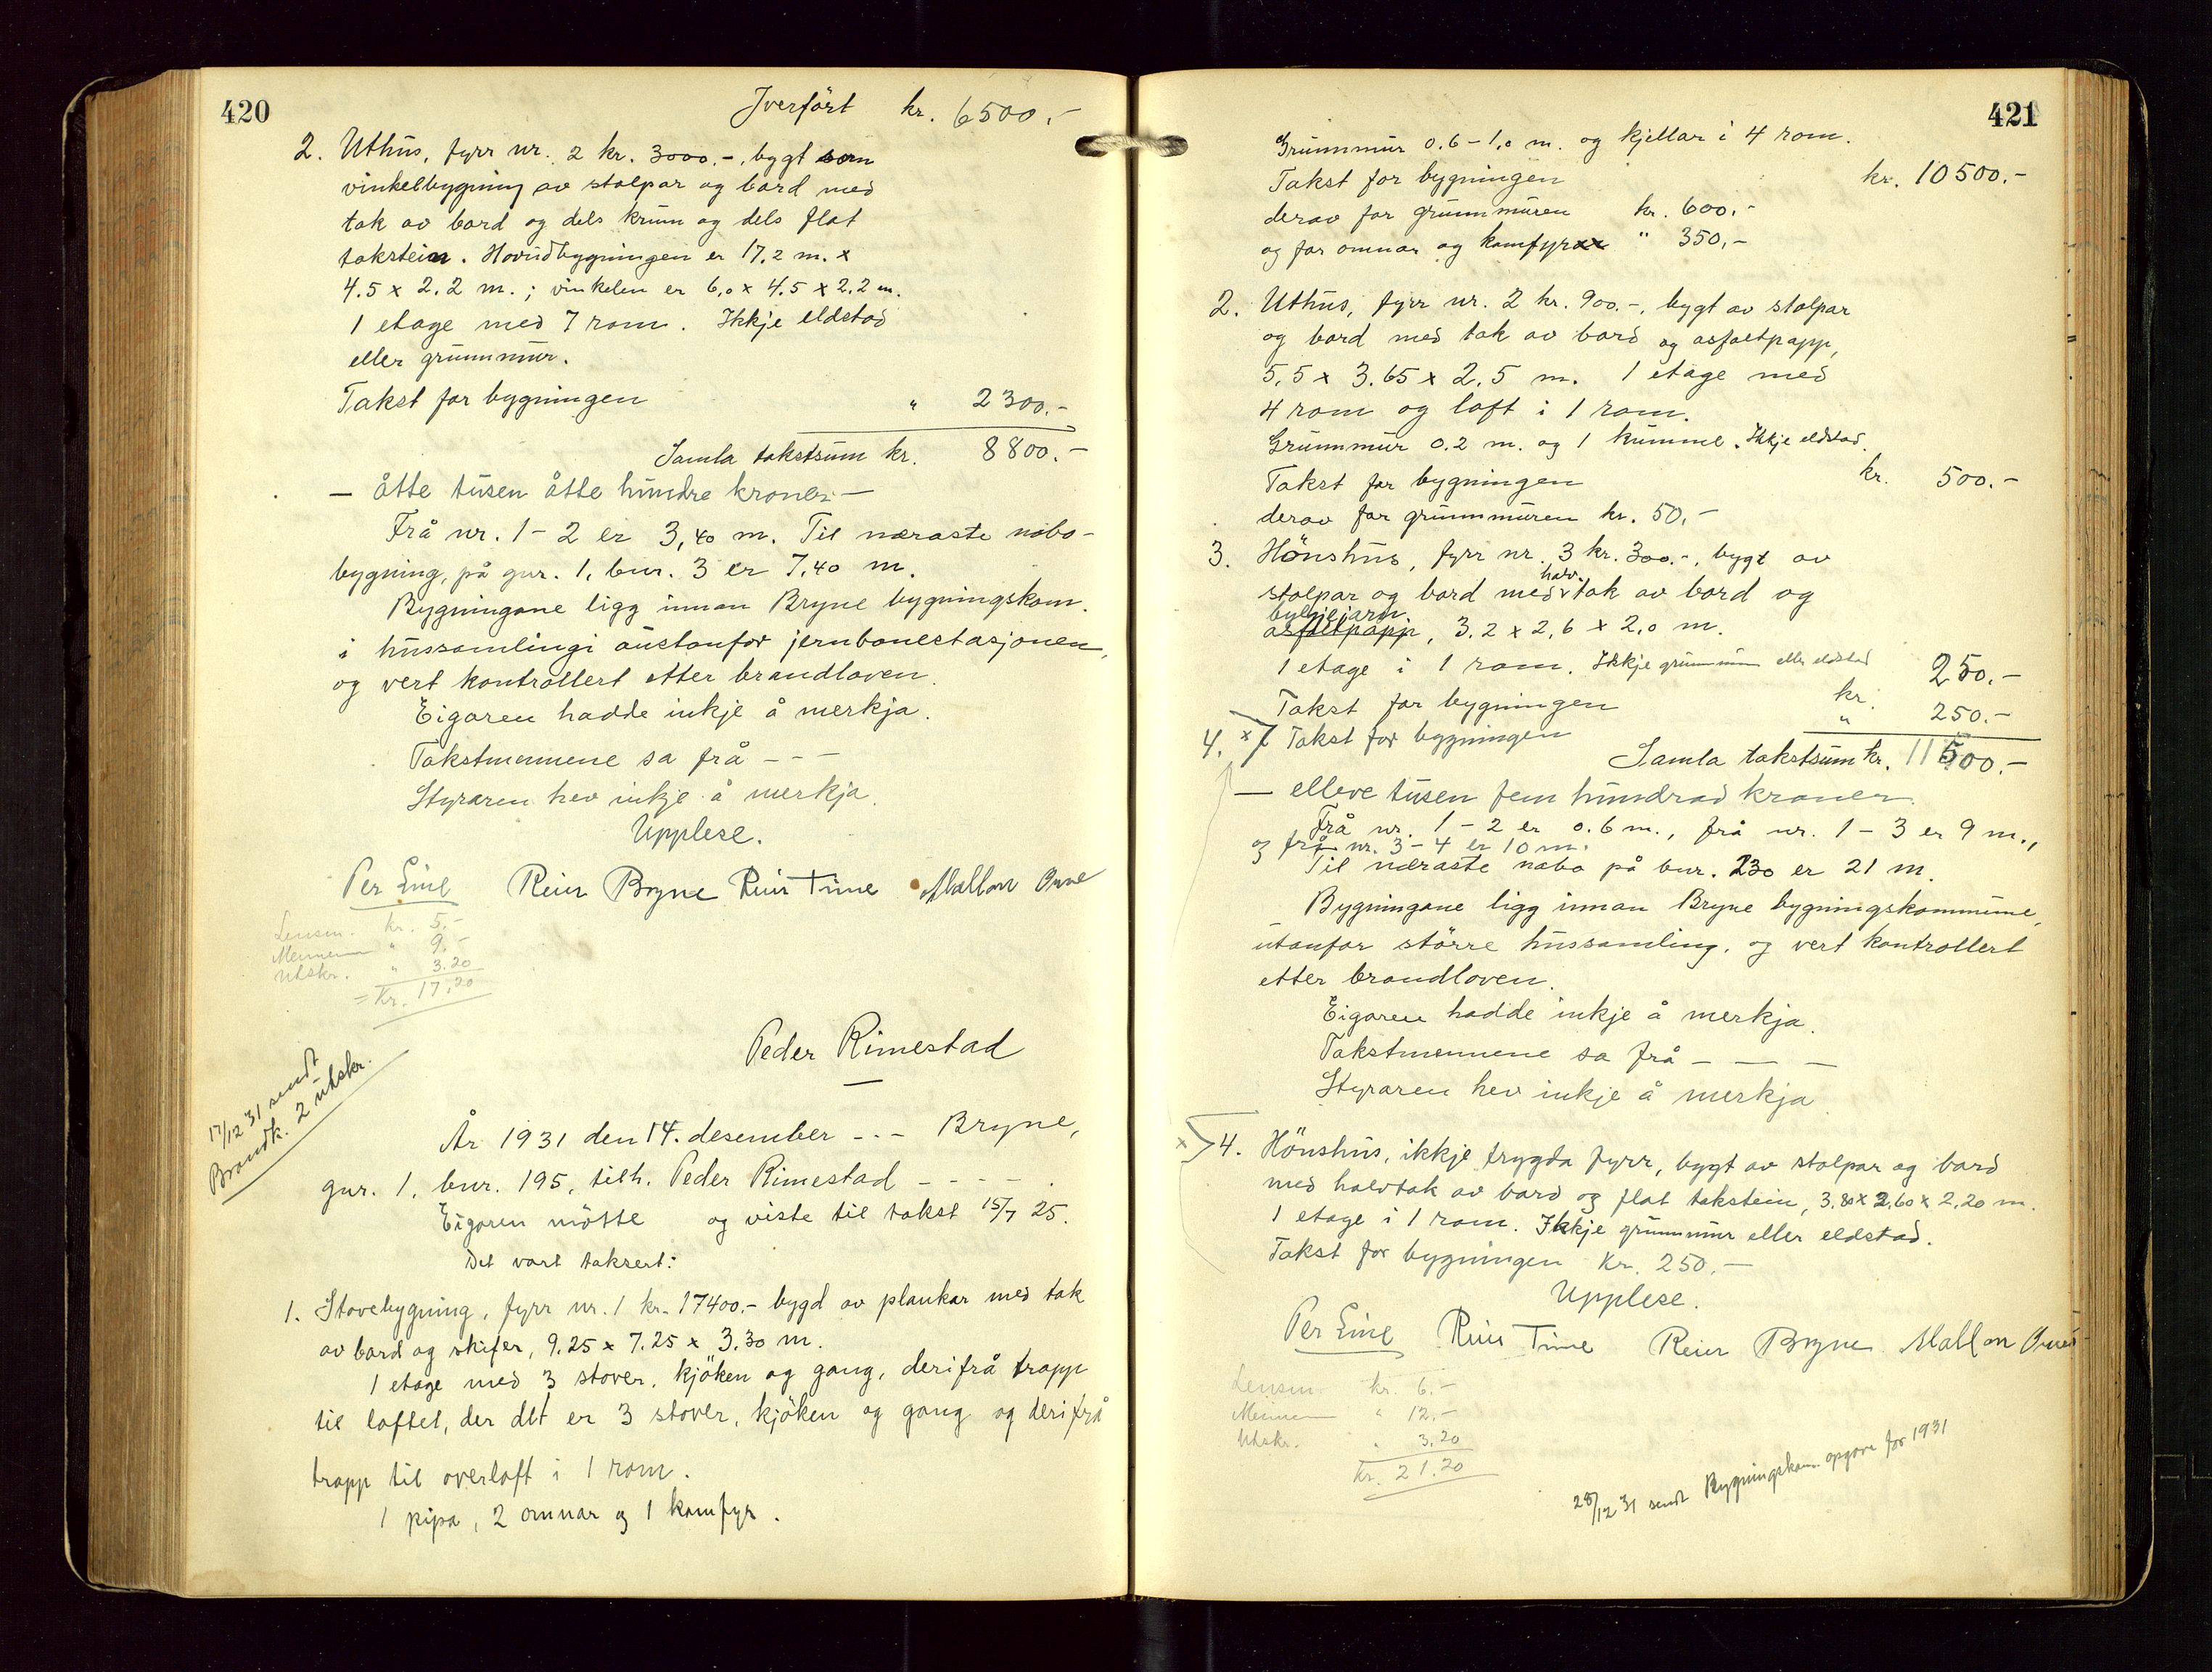 420
Yverført kr. 6500,-
2. Uthus, fyrr nr. 2 kr. 3000.-, bygt som
vinkelbygning av stolpar og bord med
tak av bord og dels krum og dels flat
takstein. Hovudbygningen er 17.2 m. x
4.5 x 2.2 m.; vinkelen er 6,0 x 4.5 x 2.2 m.
1 etage med 7 rom. Ikkje eldstad
eller grunnmur.
Takst for bygningen " 2300.-
Samla takstsum kr. 8800.-
- åtte tusen åtte hundre kroner -
Frå nr. 1-2 er 3,40 m. Til næraste nabo-
bygning, på gnr. 1, bnr. 3 er 7,40 m.
Bygningane ligg innan Bryne bygningskom.
i hussamlingi austanfor jernbanestasjonen,
og vert kontrollert etter brandloven.
Eigaren hadde inkje å merkja.
Takstmennene sa frå - - -
Styraren hev inkje å merkja.
Upplese.
Per Line Reier Bryne Reier Time Mallon Orne
Lensm. kr. 5.-
Mennene " 9.-
Utskr. " 3.20
= Kr. 17,20
Peder Rimestad
17/12 31 sendt
Brandk. 2 utskr.
År 1931 den 14. desember - - - Bryne,
gnr. 1, bnr. 195, tilh. Peder Rimestad - - - - .
Eigaren møtte og viste til takst 15/7 25.
Det vart taksert:
1. Stovebygning, fyrr nr. 1 kr. 17400.- bygd av plankar med tak
av bord og skifer, 9.25 x 7.25 x 3.30 m.
1 etage med 3 stover, kjøken og gang, derifrå trapp
til loftet, der det er 3 stover, kjøken og gang og derifrå
trapp til overloft i 1 rom.
1 pipa, 2 omnar og 1 komfyr.
421
Grunnmur 0.6-1,0 m. og kjellar i 4 rom.
Takst for bygningen kr. 10500.-
derav for grunnmuren kr. 600.-
og for omnar og komfyr " 350,-
2. Uthus, fyrr nr. 2 kr. 900.-, bygt av stolpar
og bord med tak av bord og asfaltpapp,
5,5 x 3.65 x 2.5 m. 1 etage med
4 rom og loft i 1 rom.
Grunnmur 0.2 m. og 1 kumme. Ikkje eldstad.
Takst for bygningen kr. 500.-
derav for grunnmuren kr. 50,-
3. Hønshus, fyrr nr. 3 kr. 300.-, bygt av
stolpar og bord med halvtak av bord og
bylgjejarn
asfaltpapp, 3.2 x 2,6 x 2,0 m.
1 etage i 1 rom. Ikkje grunnmur eller eldstad
Takst for bygningen kr. 250.-
4. x7 Takst for bygningen " 250.-
Samla takstsum kr. 11500.-
- elleve tusen fem hundrad kroner.
Frå nr. 1-2 er 0.6 m., frå nr. 1-3 er 9 m.,
og frå nr. 3-4 er 10 m.
Til næraste nabo på bnr. 230 er 21 m.
Bygningane ligg innan Bryne bygningskommune,
utanfor større hussamling, og vert kontrollert
etter brandloven.
Eigaren hadde inkje å merkja.
Takstmennene sa frå - - -
Styraren hev inkje å merkja.
x 4. Hønshus, ikkje trygda fyrr, bygt av stolpar og bord
med halvtak av bord og flat takstein, 3.80 x 2,60 x 2,20 m.
1 etage i 1 rom. Ikkje grunnmur eller eldstad.
Takst for bygningen Kr. 250.-
Upplese.
Per Line Reier Time Reier Bryne Mallon
Lensm. kr. 6.-
Mennene " 12.-
Utskr. " 3.20
Kr. 21.20
28/12 31 sendt Bygningskom. opgave for 1931